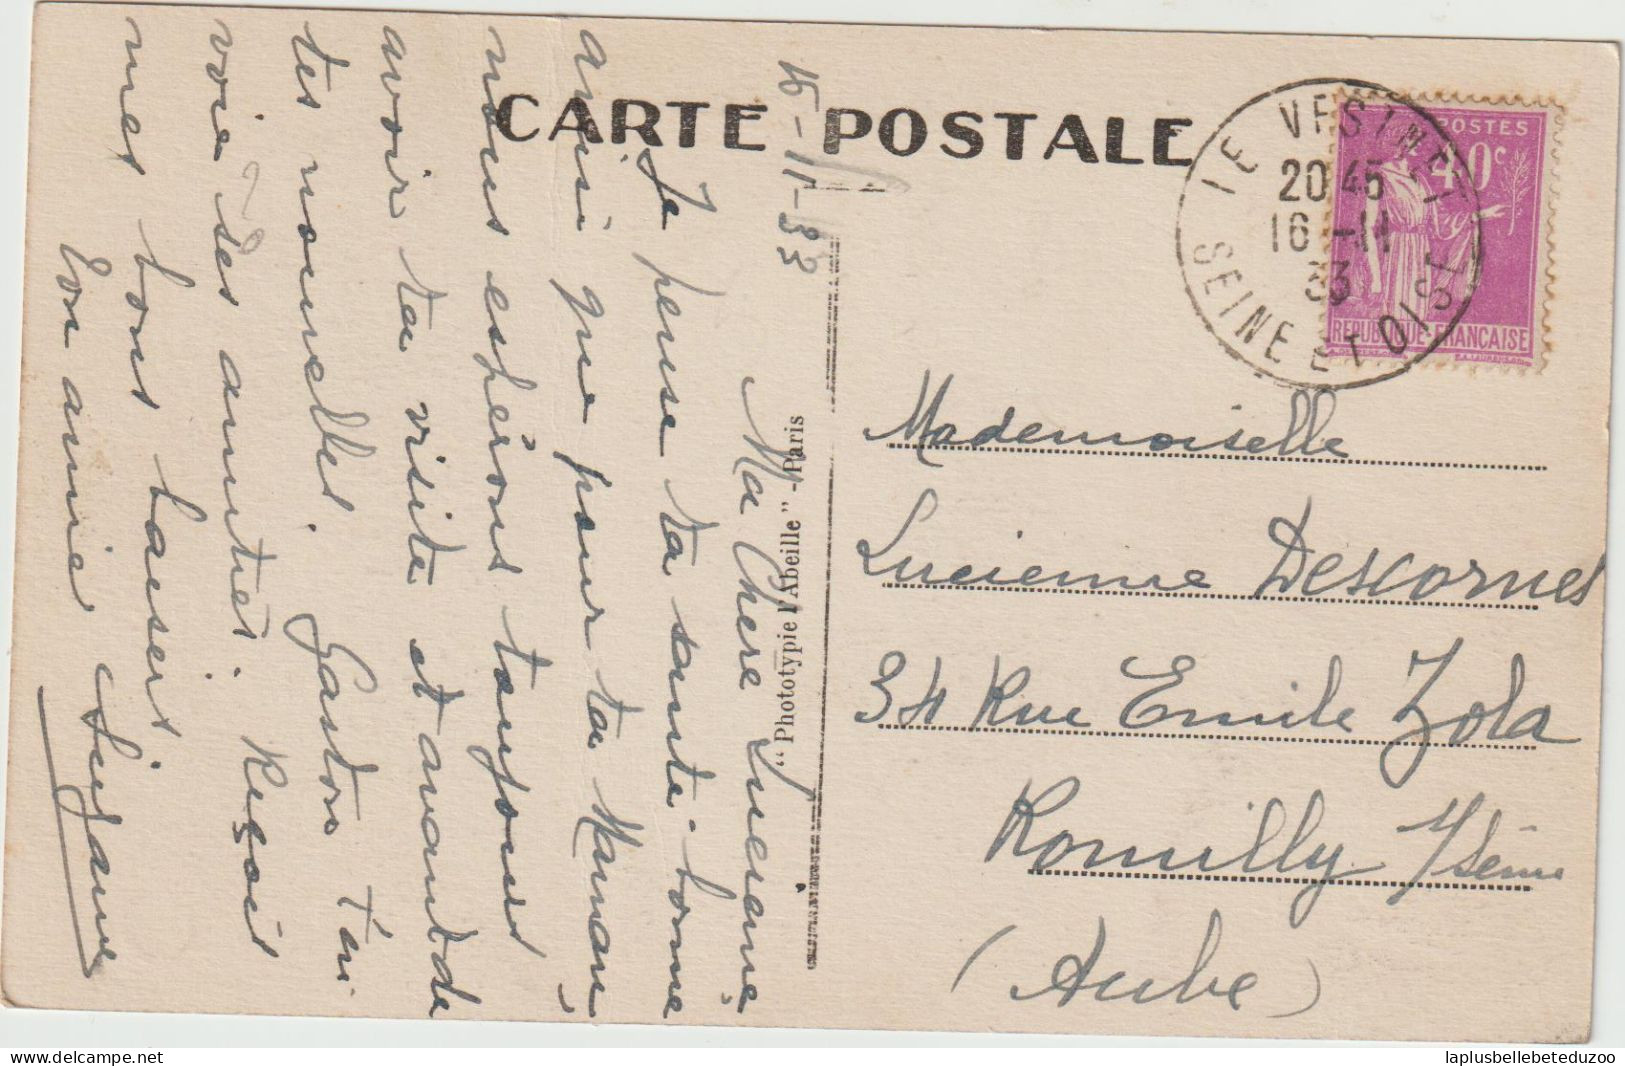 CARTE POSTALE
POSTES
40c
REPUBLIQUE FRANCAISE
LE VESINET
20 45
16 -11
33
SEINE ET OISE
Mademoiselle
Lucienne Descornes
34 Rue Emile Zola
Romilly s/Seine
(Aube)
"Phototypie l'Abeille" - Paris
15-11-33
Ma Chere Lucienne
Je pense ta santé bonne
ainsi que pour ta Maman
nous espérons toujours
avoir ta visite et avant de
tes nouvelles. Gaston t'en
voie ses amitiés. Reçois
mes bons baisers
Ton amie Suzanne
delcampe.net
laplusbellebeteduzoo